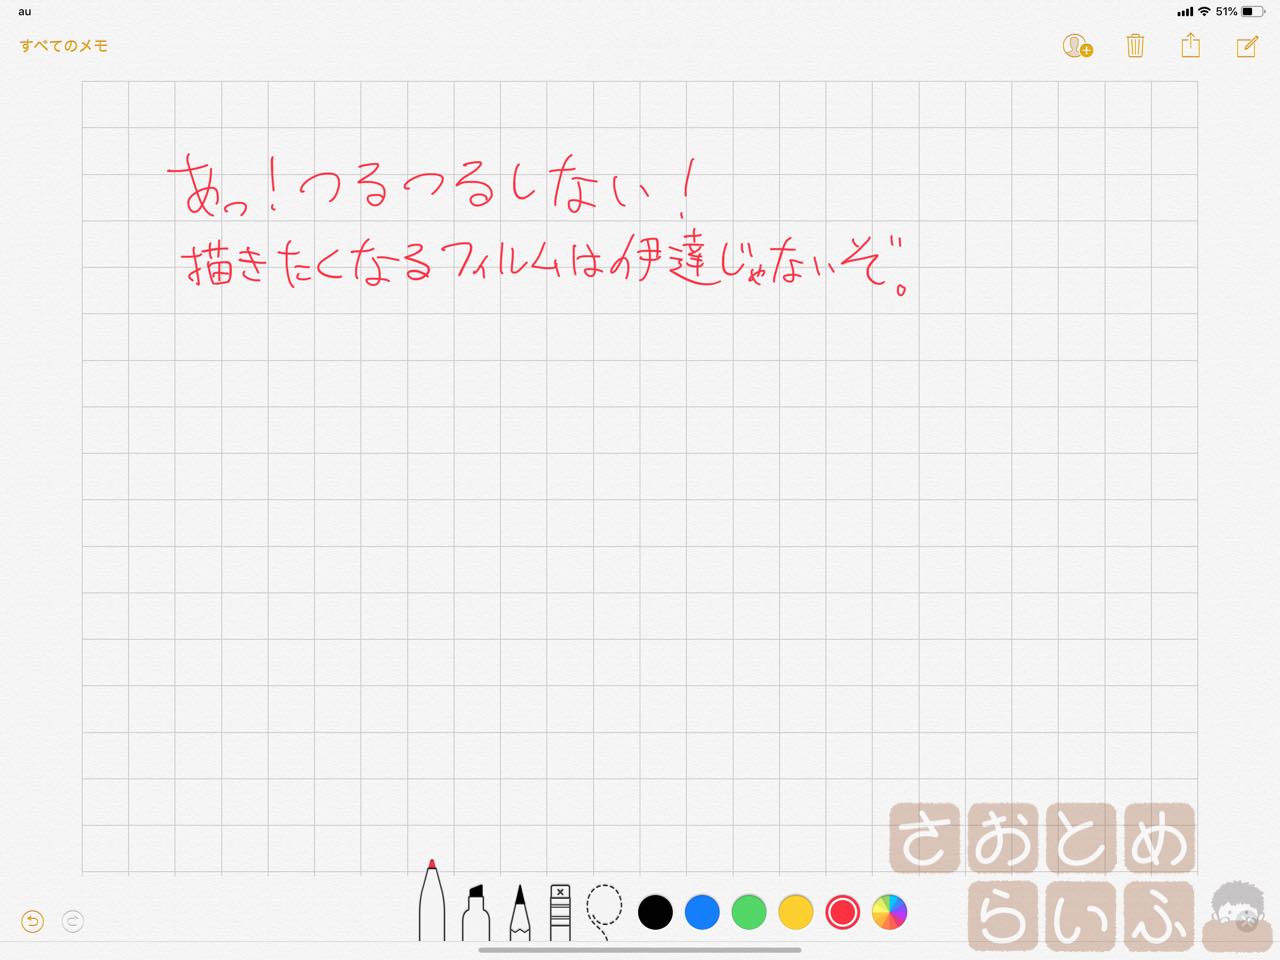 au
51%
すべてのメモ
あっ!つるつるしない!
描きたくなるフィルムは伊達じゃないぞ。
さおとめ
らいふ